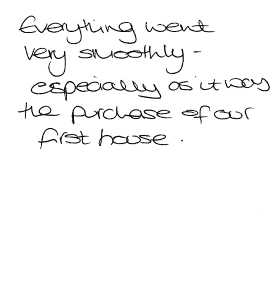 Everything went
very smoothly -
especially as it was
the purchase of our
first house.